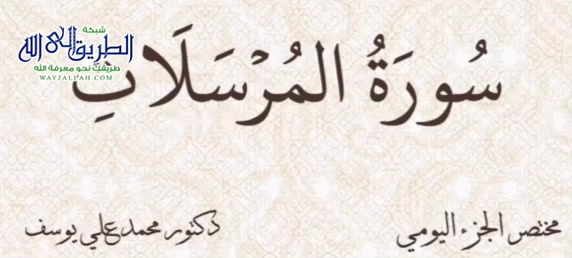 شبكة
الطريق إلى الله
طريقك نحو معرفة الله
WAY2ALLAH.COM
سُورَةُ المُرْسَلَاتِ
مختصر الجزء اليومي
دكتور محمد علي يوسف